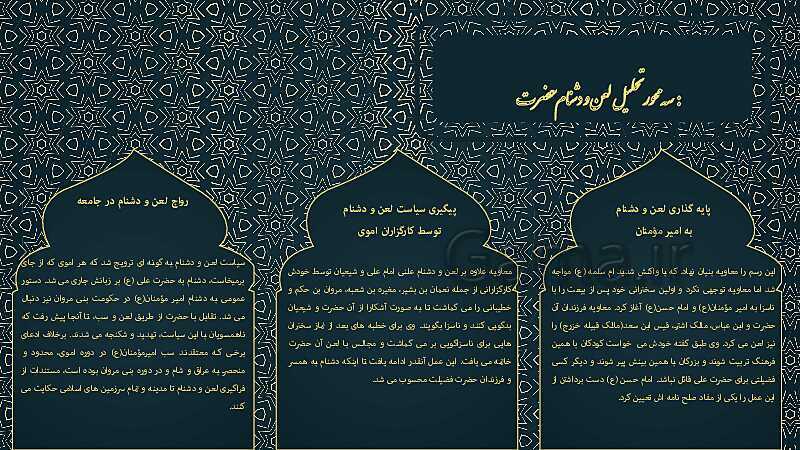 سه محور تحلیل لعن و دشنام حضرت :
پایه گذاری لعن و دشنام
به امیر مؤمنان
این رسم را معاویه بنیان نهاد، که با واکنش شدید ام سلمه (ع) مواجه
شد. اما معاویه توجهی نکرد و اولین سخنرانی خود پس از بیعت را با
ناسزا به امیر مؤمنان(ع) و امام حسن(ع) آغاز کرد. معاویه فرزندان آن
حضرت و ابن عباس، مالک اشتر، قیس ابن سعد(مالک قبیله خزرج) را
نیز لعن می کرد. وی طبق گفته خودش می خواست کودکان با همین
فرهنگ تربیت شوند و بزرگان با همین بینش پیر شوند و دیگر کسی
فضیلتی برای حضرت علی قائل نباشد. امام حسن(ع) دست برداشتن از
این عمل را یکی از مفاد صلح نامه اش تعیین کرد.
پیگیری سیاست لعن و دشنام
توسط کارگزاران اموی
معاویه علاوه بر لعن و دشنام علنی امام علی و شیعیان توسط خودش
کارگزارانی از جمله نعمان بن بشیر، مغیره بن شعبه، مروان بن حکم و
خطیبانی را می گماشت تا به صورت آشکارا از آن حضرت و شیعیان
بدگویی کنند و ناسزا بگویند. وی برای خطبه های بعد از نماز سخنران
هایی برای ناسزاگویی بر می گماشت و مجالس با لعن آن حضرت
خاتمه می یافت. این عمل آنقدر ادامه یافت تا اینکه دشنام به همسر
و فرزندان حضرت فضیلت محسوب می شد.
رواج لعن و دشنام در جامعه
سیاست لعن و دشنام به گونه ای ترویج شد که هر اموی که از جای
برمیخاست، دشنام به حضرت علی (ع) بر زبانش جاری می شد. دستور
عمومی به دشنام امیر مؤمنان(ع) در حکومت بنی مروان نیز دنبال
می شد. تقابل با حضرت از طریق لعن و سب، تا آنجا پیش رفت که
ناهمسویان با این سیاست، تهدید و شکنجه می شدند. برخلاف ادعای
برخی که معتقدند سب امیرمؤمنان(ع) در دوره اموی، محدود و
منحصر به عراق و شام و در دوره بنی مروان بوده است، مستندات از
فراگیری لعن و دشنام تا مدینه و تمام سرزمین های اسلامی حکایت می
کند.
Gama.ir